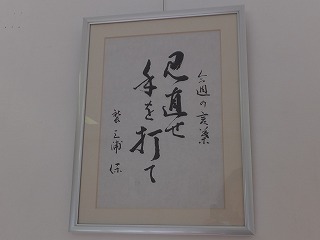 今週の言葉
見直せ
手を打て
三浦 保